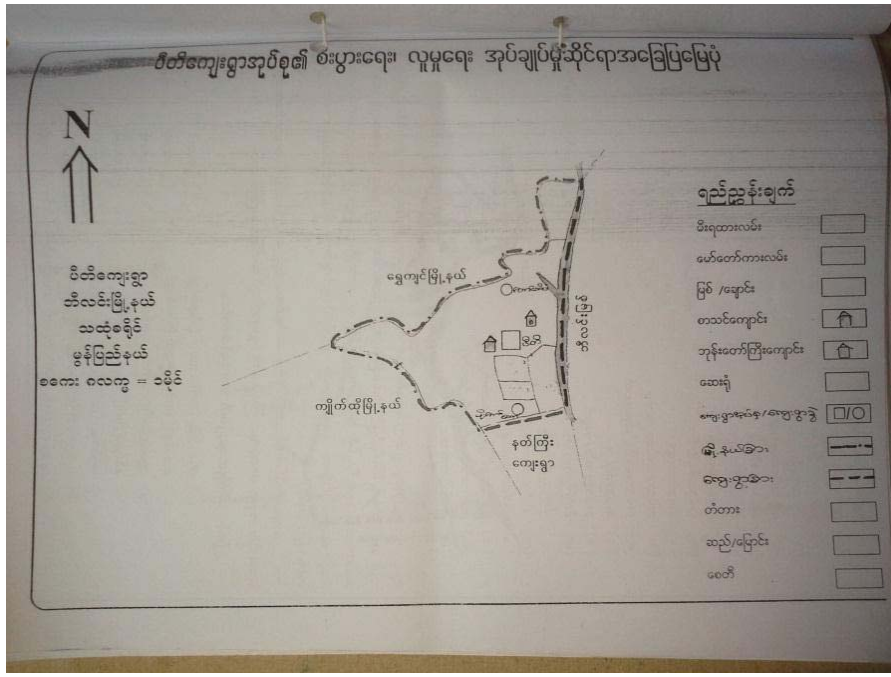 ပီတိကျေးရွာအုပ်စု၏ စီးပွားရေး၊ လူမှုရေး အုပ်ချုပ်မှုဆိုင်ရာအခြေပြမြေပုံ
N
ပီတိကျေးရွာ
ဘီလင်းမြို့နယ်
သထုံခရိုင်
မွန်ပြည်နယ်
စကေး ၁လက္မ = ၁မိုင်
ရွှေကျင်မြို့နယ်
ကျိုက်ထိုမြို့နယ်
ပီတိ
ဘီလင်းမြစ်
နတ်ကြီး
ကျေးရွာ
ရည်ညွှန်းချက်
မီးရထားလမ်း
မော်တော်ကားလမ်း
မြစ် /ချောင်း
စာသင်ကျောင်း
ဘုန်းတော်ကြီးကျောင်း
ဆေးရုံ
ကျေးရွာအုပ်စု/ကျေးရွာခွဲ
မြို့နယ်ခြား
ကျေးရွာခြား
တံတား
ဆည်/မြောင်း
စေတီ